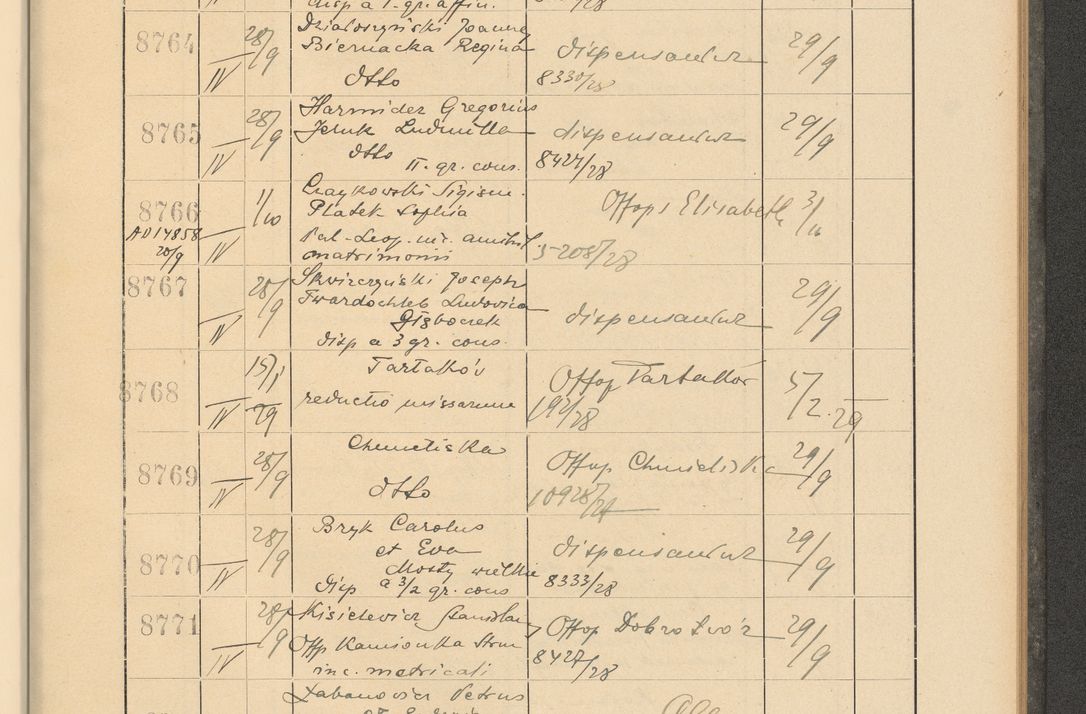 disp a 1. gr. affin.
8764 IV 28/9 Działoszyński Joannes
Biernacka Regina dispensantur 29/9
dtto 8330/28
8765 IV 28/9 Harmider Gregorius
Ludmilla dispensantur 29/9
dtto II. gr. cons. 8427/28
8766 1/10 Czaykowski Sigism.
Platek Sophia Offop Elisabeth 3/10
AD 14858
20/9 IV
matrimonii 5208/28
8767 IV 28/9 Skwirczyński Joseph
Twardochleb Ludovica 29/9
dispensantur
disp a 3 gr. cons.
8768 IV 15/1 29 Tartaków Offop Tartaków 5/2. 29
reductio missarum 192/28
8769 IV 28/9 Chmieliska Offop Chmieliska 29/9
dtto 10928/27
8770 IV 28/9 Bryk Carolus
et Eva dispensantur 29/9
Mosty wielkie
Disp a 3/2 gr. cons 8333/28
8771 IV 28/9 Kisielevicz Stanislaus Offop Dobrotwór 29/9
Offp Kamionka Strum 8427/28
inc. matricati
Łabanovicz Petrus